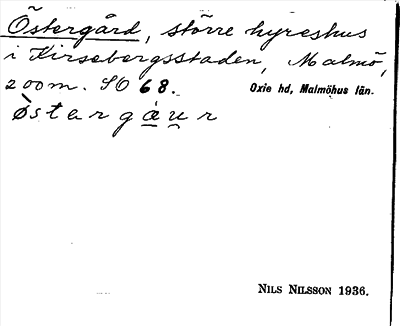 Östergård, större hyreshus
i Kirsebergsstaden, Malmö,
200 m. SO 68. Oxie hd, Malmöhus län.
ø̀stergáu̯r
NILS NILSSON 1936.